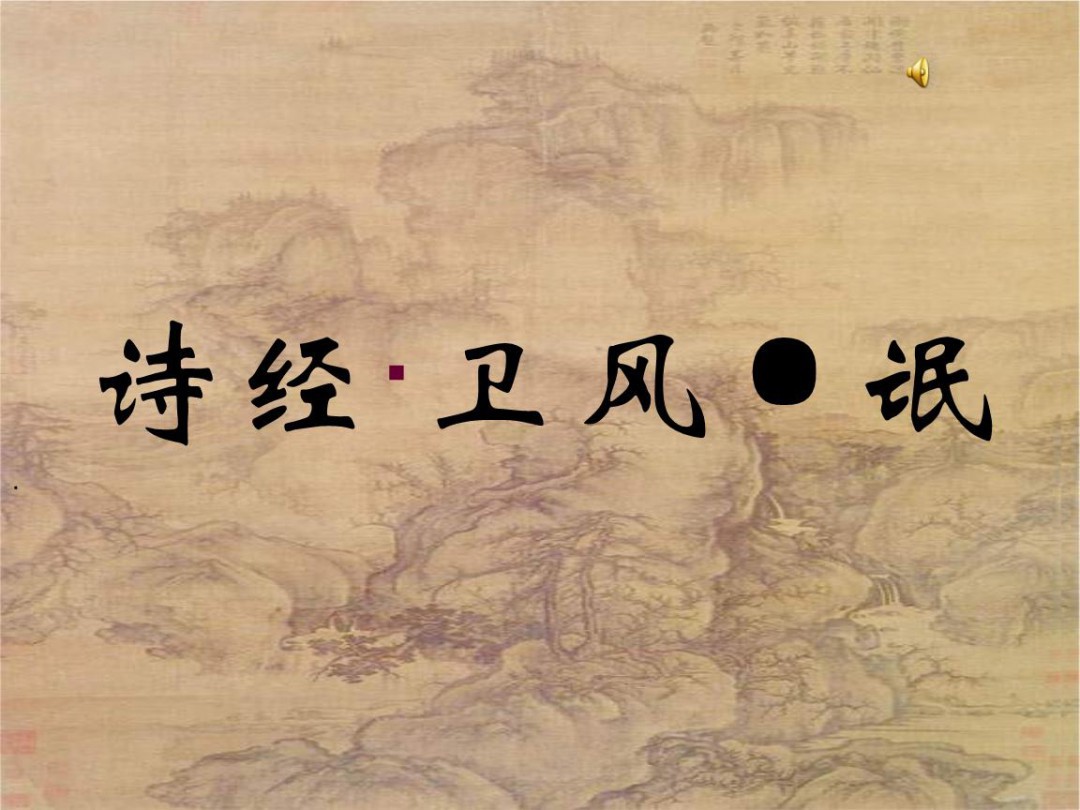 诗经·卫风●氓